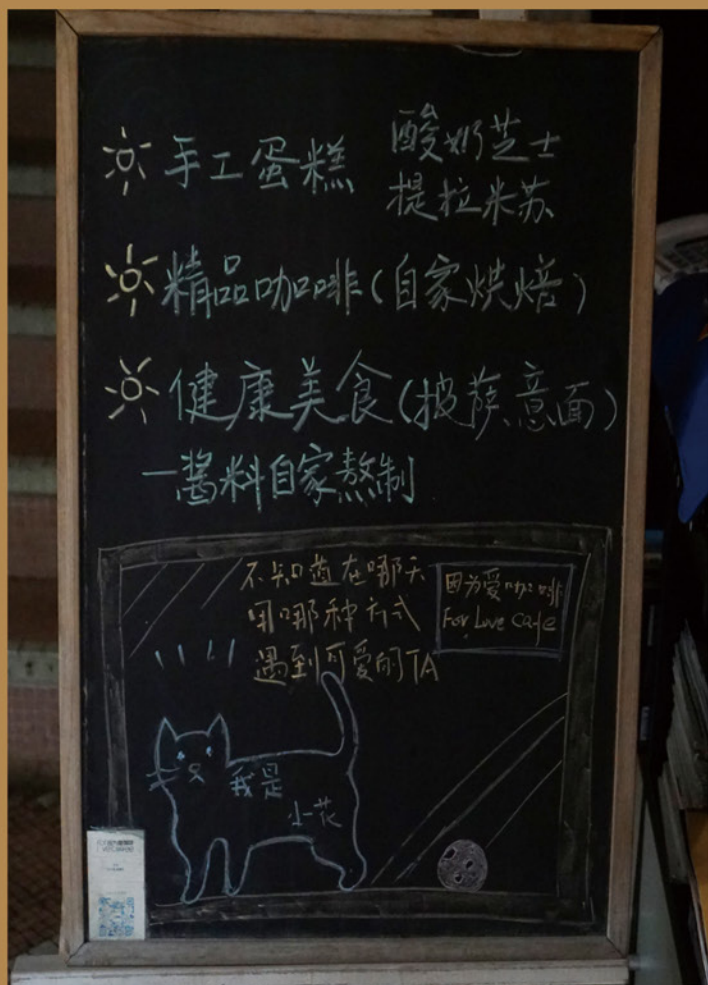 手工蛋糕 酸奶芝士
提拉米苏
精品咖啡(自家烘焙)
健康美食(披萨、意面)
—酱料自家熬制
不知道在哪天
用哪种方式
遇到可爱的TA
因为爱咖啡
For Love Cafe
我是
小花